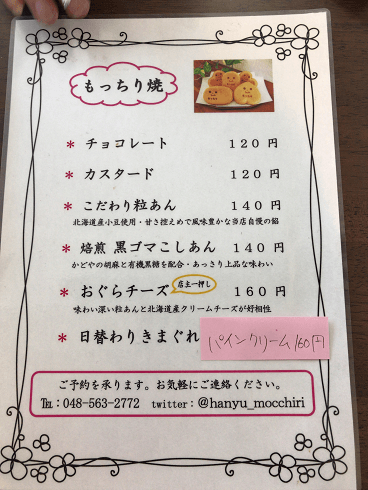 もっちり焼
* チョコレート 120 円
* カスタード 120 円
* こだわり粒あん 140 円
北海道産小豆使用・甘さ控えめで風味豊かな当店自慢の餡
* 焙煎 黒ゴマこしあん 140 円
かどやの胡麻と有機黒糖を配合・あっさり上品な味わい
店主一押し
* おぐらチーズ 160 円
味わい深い粒あんと北海道産クリームチーズが好相性
* 日替わりきまぐれ パインクリーム 160円
ご予約を承ります。お気軽にご連絡ください。
℡：048-563-2772 twitter：@hanyu_mocchiri